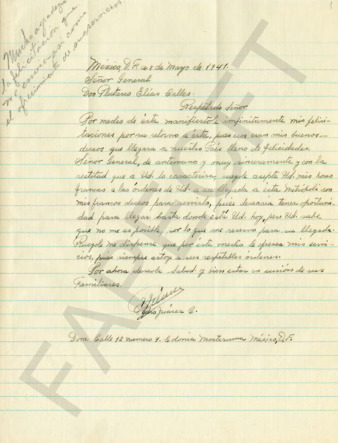 Mucho agradezco
la felicitación que
me envía, así como
el ofrecimiento de
México, D.F. a 8 de Mayo de 1941.
Señor General
Don Plutarco Elías Calles.
Respetable Señor
Por medio de ésta manifiéstole infinitamente mis felici-
taciones por su retorno a ésta, pues son mis buenos
deseos que llegara a nuestro País lleno de felicidades.
Señor General, de antemano y muy sinceramente y con la
rectitud que a Ud. lo caracteriza, ruégole acepte Ud. mis
francas a las órdenes de Ud. a su llegada a ésta Metrópoli con
mis francos deseos para servirlo, pues desearía tener oportuni-
dad para llegar hasta donde está Ud. hoy, pero Ud. sabe
que no me es posible, por lo que me reservo para su llegada.
Ruégole me dispense que por éste medio le ofrezca mis servi-
cios, pues siempre estoy a sus respetables órdenes.
Por ahora deséole Salud y bienestar en unión de sus
Familiares.
Dom. Calle 12 número 4. Colonia Moctezuma México, D.F.
FAPECFT